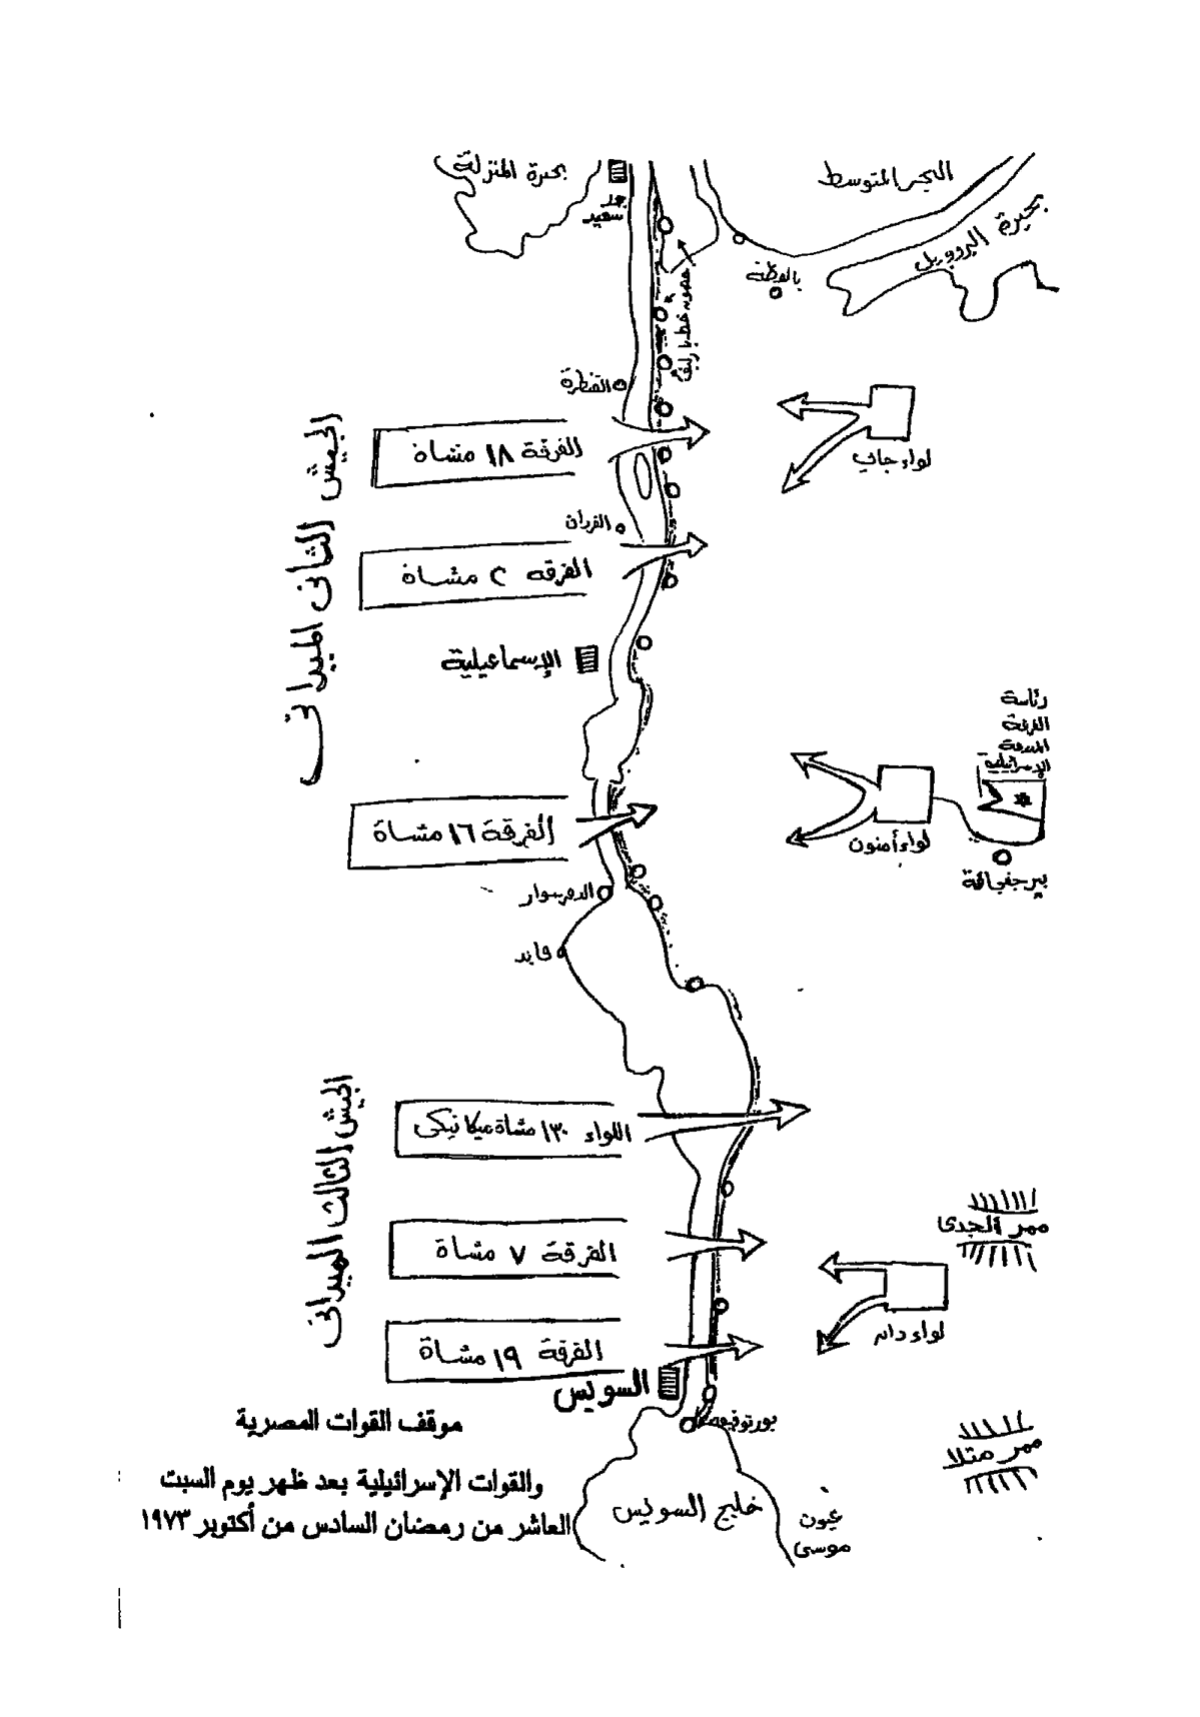 البحر المتوسط
بحيرة المنزلة
بور
سعيد
بحيرة البردويل
بالوظة
حصون خط بارليف
القنطرة
الجيش الثاني الميداني
الفرقة ١٨ مشاة
لواء جابي
الفردان
الفرقة ٢ مشاة
الإسماعيلية
رئاسة
الفرقة
المدرعة
الإسرائيلية
الفرقة ١٦ مشاة
لواء أمنون
بير جفجافة
الدفرسوار
فايد
الجيش الثالث الميداني
اللواء ١٣٠ مشاة ميكانيكي
ممر الجدى
الفرقة ٧ مشاة
لواء دان
الفرقة ١٩ مشاة
السويس
بور توفيق
ممر متلا
خليج السويس
عيون
موسى
موقف القوات المصرية
والقوات الإسرائيلية بعد ظهر يوم السبت
العاشر من رمضان السادس من أكتوبر ١٩٧٣